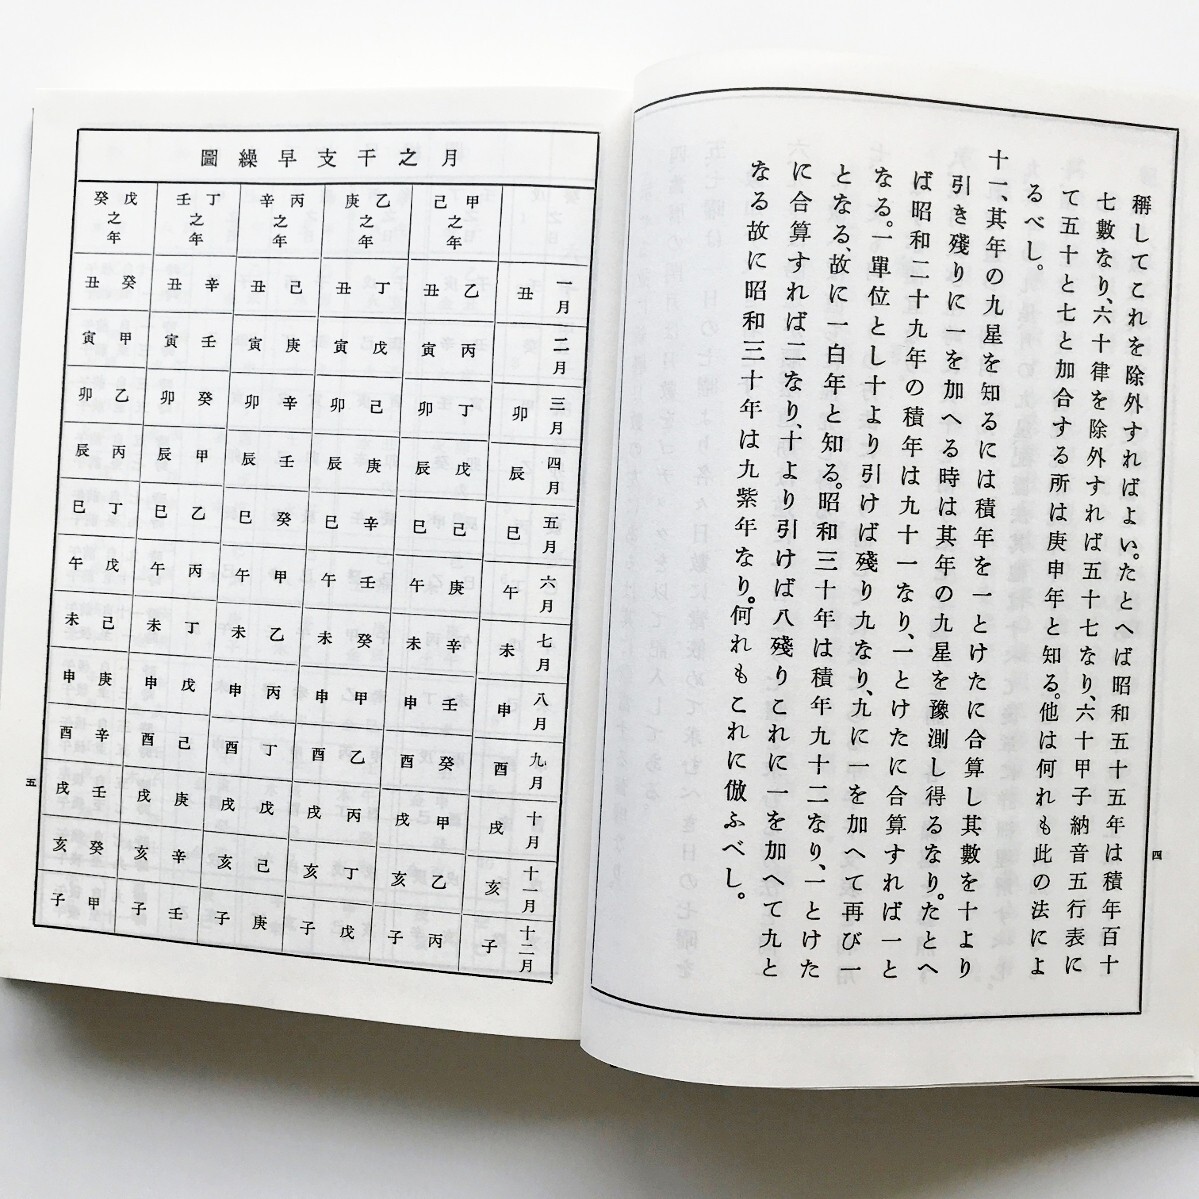 稱してこれを除外すればよい。たとへば昭和五十五年は積年百十
七數なり、六十律を除外すれば五十七なり、六十甲子納音五行表に
て五十と七と加合する所は庚申年と知る。他は何れも此の法によ
るべし。
十一、其年の九星を知るには積年を一とけたに合算し其數を十より
引き殘りに一を加へる時は其年の九星を豫測し得るなり。たとへ
ば昭和二十九年の積年は九十一なり、一とけたに合算すれば一と
なる。一單位とし十より引けば殘り九なり、九に一を加へて再び一
となる、故に一白年と知る。昭和三十年は積年九十二なり、一とけた
に合算すれば二なり、十より引けば八殘りこれに一を加へて九と
なる故に昭和三十年は九紫年なり。何れもこれに倣ふべし。
四
月之干支早繰圖
甲己之年 乙庚之年 丙辛之年 丁壬之年 戊癸之年
一月 丑 乙丑 丁丑 己丑 辛丑 癸丑
二月 寅 丙寅 戊寅 庚寅 壬寅 甲寅
三月 卯 丁卯 己卯 辛卯 癸卯 乙卯
四月 辰 戊辰 庚辰 壬辰 甲辰 丙辰
五月 巳 己巳 辛巳 癸巳 乙巳 丁巳
六月 午 庚午 壬午 甲午 丙午 戊午
七月 未 辛未 癸未 乙未 丁未 己未
八月 申 壬申 甲申 丙申 戊申 庚申
九月 酉 癸酉 乙酉 丁酉 己酉 辛酉
十月 戌 甲戌 丙戌 戊戌 庚戌 壬戌
十一月 亥 乙亥 丁亥 己亥 辛亥 癸亥
十二月 子 丙子 戊子 庚子 壬子 甲子
五